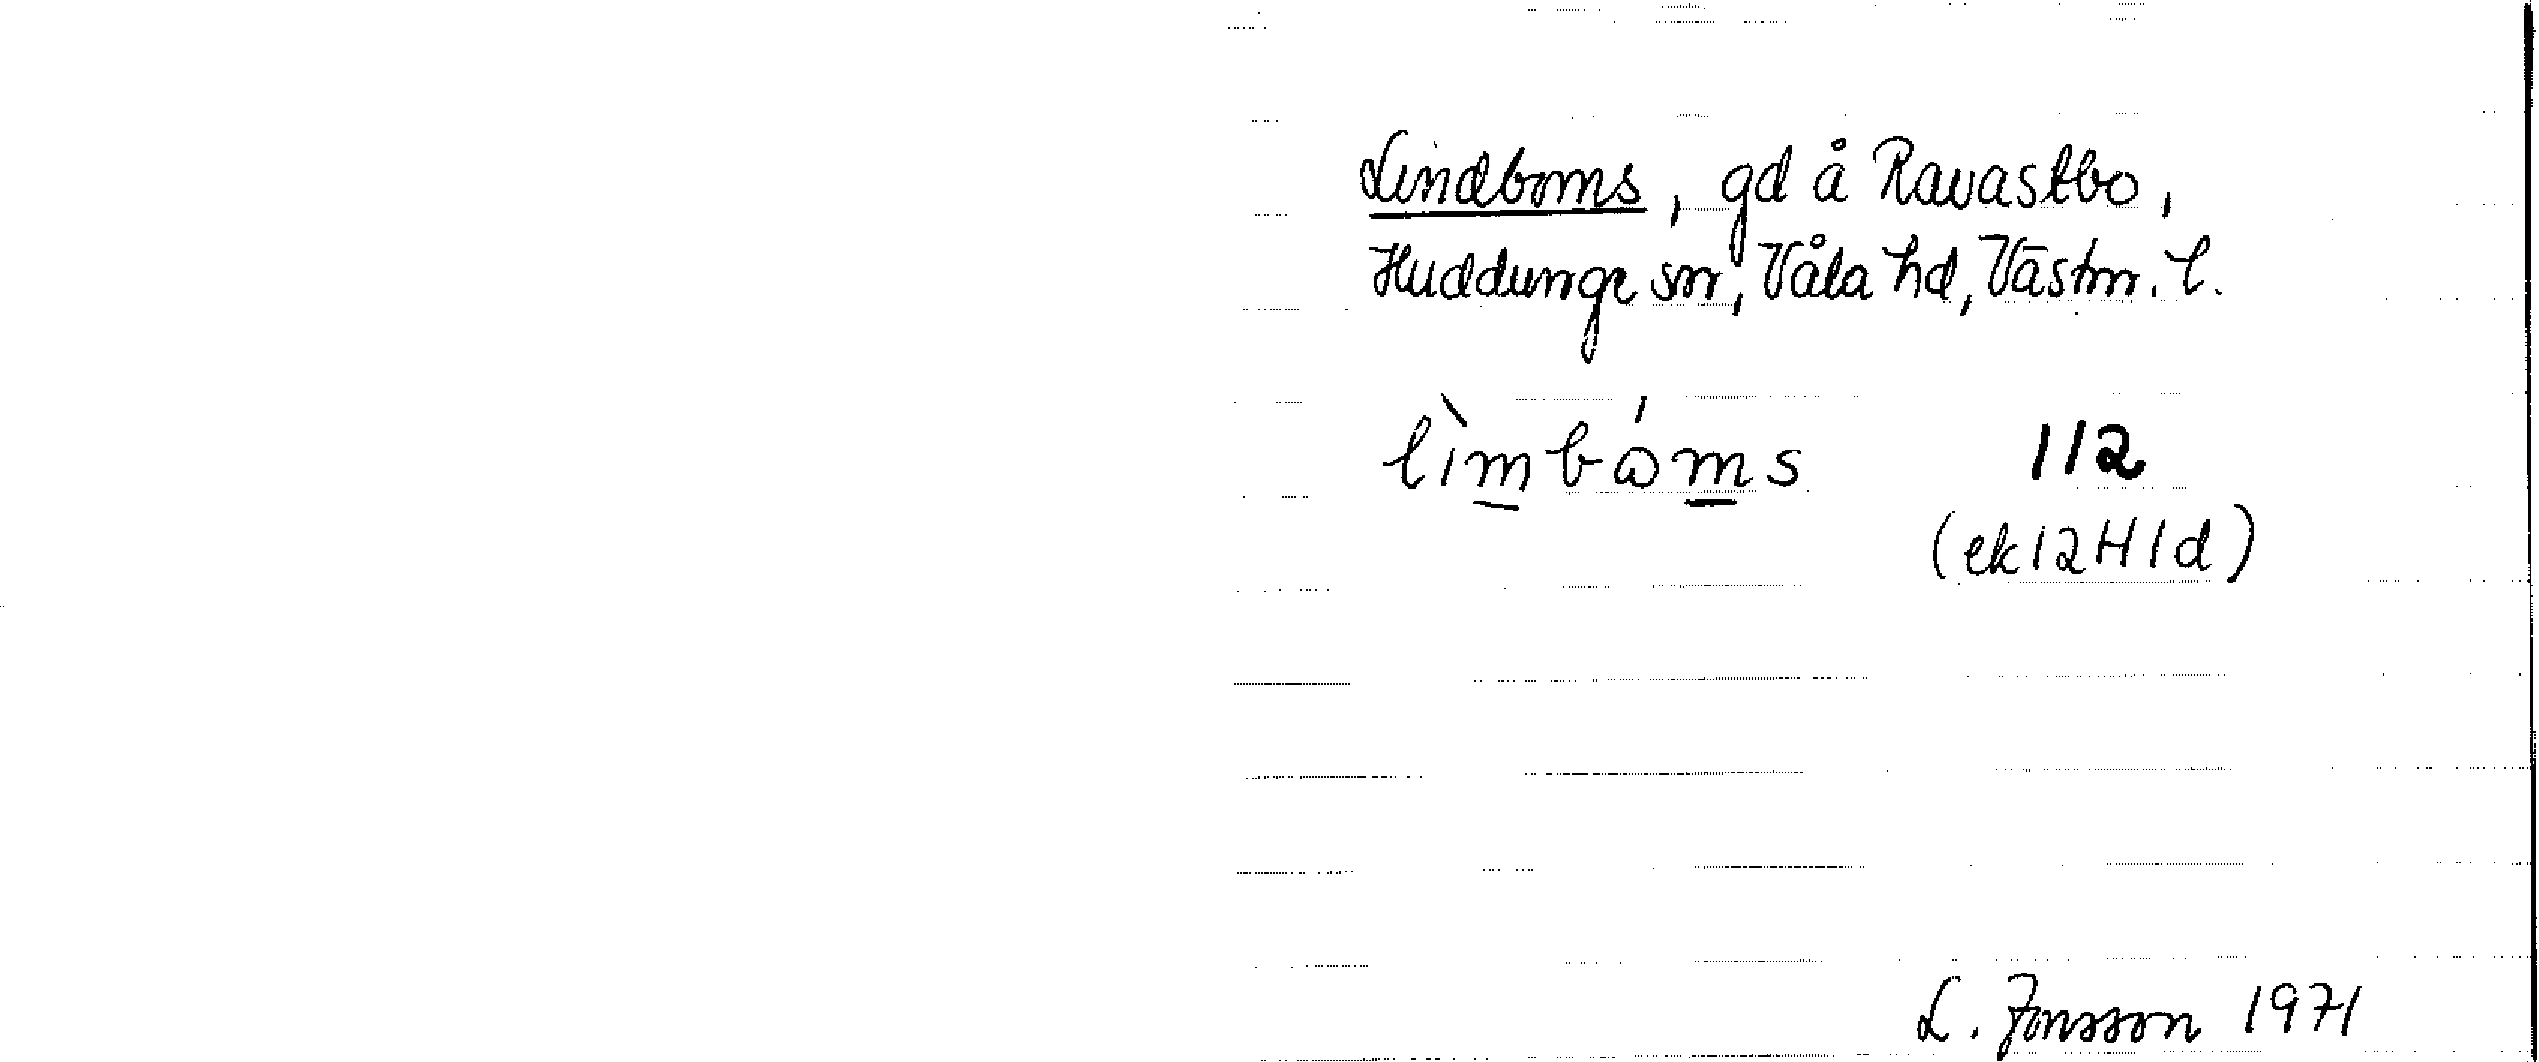 Lindboms, gd å Ravastbo,
Huddunge sn, Våla hd, Västm. l.
lìmbɷ́ms 112
(ek 12H1d)
L. Jonsson 1971